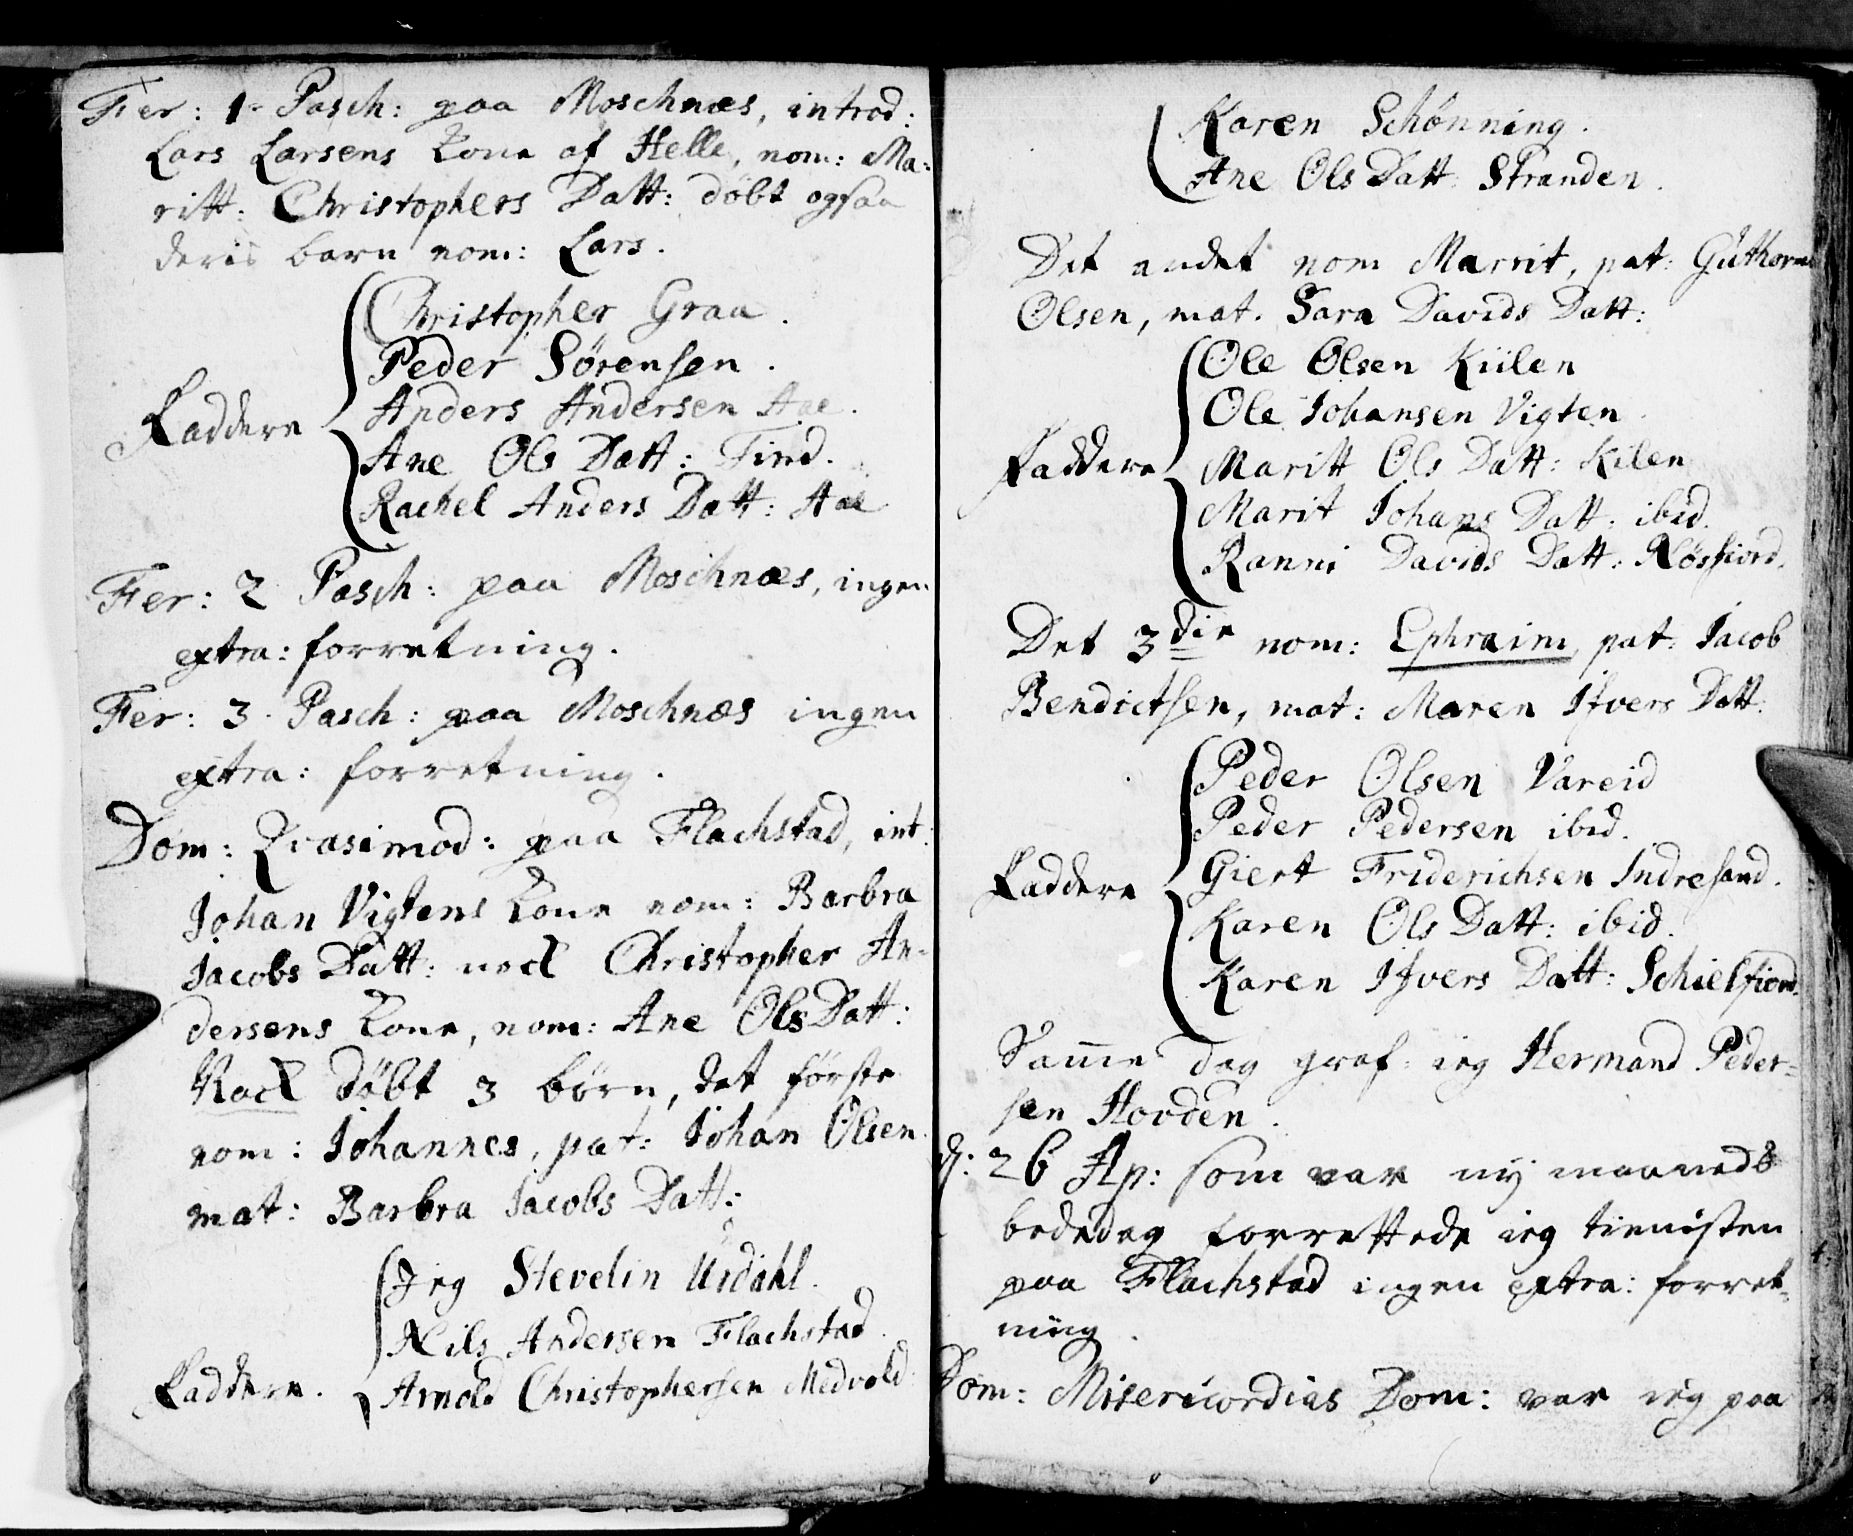 Fer: 1. Pasch: paa Moschnæs, introd:
Lars Larsens kone af Helle, nom: Ma-
ritt: Christophers Datt: døbt ogsaa
deris barn nom: Lars.
Christopher Graa.
Peder Sørensen.
Anders Andersen Aae.
Faddere
Ane Ols Datt: Find.
Rachel Anders Datt: Aae
Fer: 2 Pasch: paa Moschnæs, ingen
extra: forretning.
Fer: 3. Pasch: paa Moschnæs ingen
extra: forretning.
Dom: Qvasimod: paa Flachstad, int:
Johan Vigtens kone nom: Barbra
Jacobs Datt: nock Christopher An-
dersens kone, nom: Ane Ols Datt:
Nock døbt 3 børn, det første
nom: Johannes, pat: Johan Olsen
mat: Barbra Jacobs Datt:
Jeg Stevelin Urdahl.
Nils Andersen Flachstad.
Faddere. Arnold Christophersen Medvold
Karen Schønning.
Ane Ols Datt Stranden.
Det andet nom Marrit, pat: Guthorm
Olsen, mat. Sara Davids Datt:
Ole Olsen Kiilen
Ole Johansen Vigten.
Faddere Maritt Ols Datt: Kilen
Marit Johans Datt: ibid.
Ranni Davids Datt: Røsfiord.
Det 3die nom: Ephraim, pat: Jacob
Bendictsen, mat: Maren Ifvers Datt:
Peder Olsen Vareid
Peder Pedersen ibid.
Faddere Giert Friderichsen Indresand.
Karen Ols Datt: ibid.
Karen Ifvers Datt: Schielfiord.
Samme dag graf: ieg Hermand Peder-
sen Hovden.
d: 26 Ap: som var ny maaneds
bededag forrettede ieg tienisten
paa Flachstad ingen extra: forret-
ning.
Dom: Misericordias Dom: var ieg paa